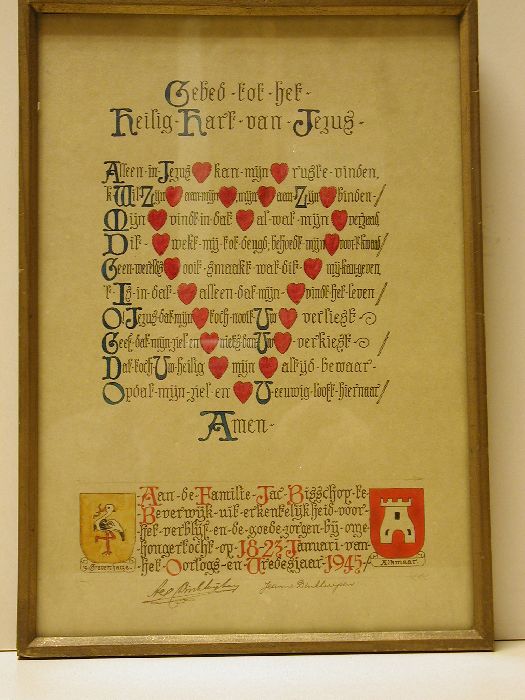 Gebed-tot-het-
Heilig-Hart-van-Jezus-
Alleen-in-Jezus kan-mijn ruste-vinden,
'k Wil-Zijn aan-mijn mijn aan-Zijn binden-/
Mijn vindt-in-dat al-wat-mijn vergend,
Dit- wekt-mij-tot-deugd, behoedt-mijn voor-kwaad/
Geen-wereldsch ooit-smaakt-wat-dit- mij-kan-geven
't-Is-in-dat- alleen-dat-mijn- vindt-het-leven/
O! Jezus-dat-mijn toch-nooit-Uw verliest-
Geef-dat-mijn-ziel-en niets-dan-Uw verkiest-/
Dat-toch-Uw-heilig mijn altijd-bewaar-
Opdat-mijn-ziel-en U-eeuwig-looft-hiernaar/
Amen-
-Aan-de-Familie-Jac-Bisschop-te-
Beverwijk-uit-erkentelijkheid-voor-
het-verblijf-en-de-goede-zorgen-bij-onze
hongertocht-op-18-23-Januari-van-
het-Oorlogs-en-Vredesjaar-1945-/
's-Gravenhage
Alkmaar